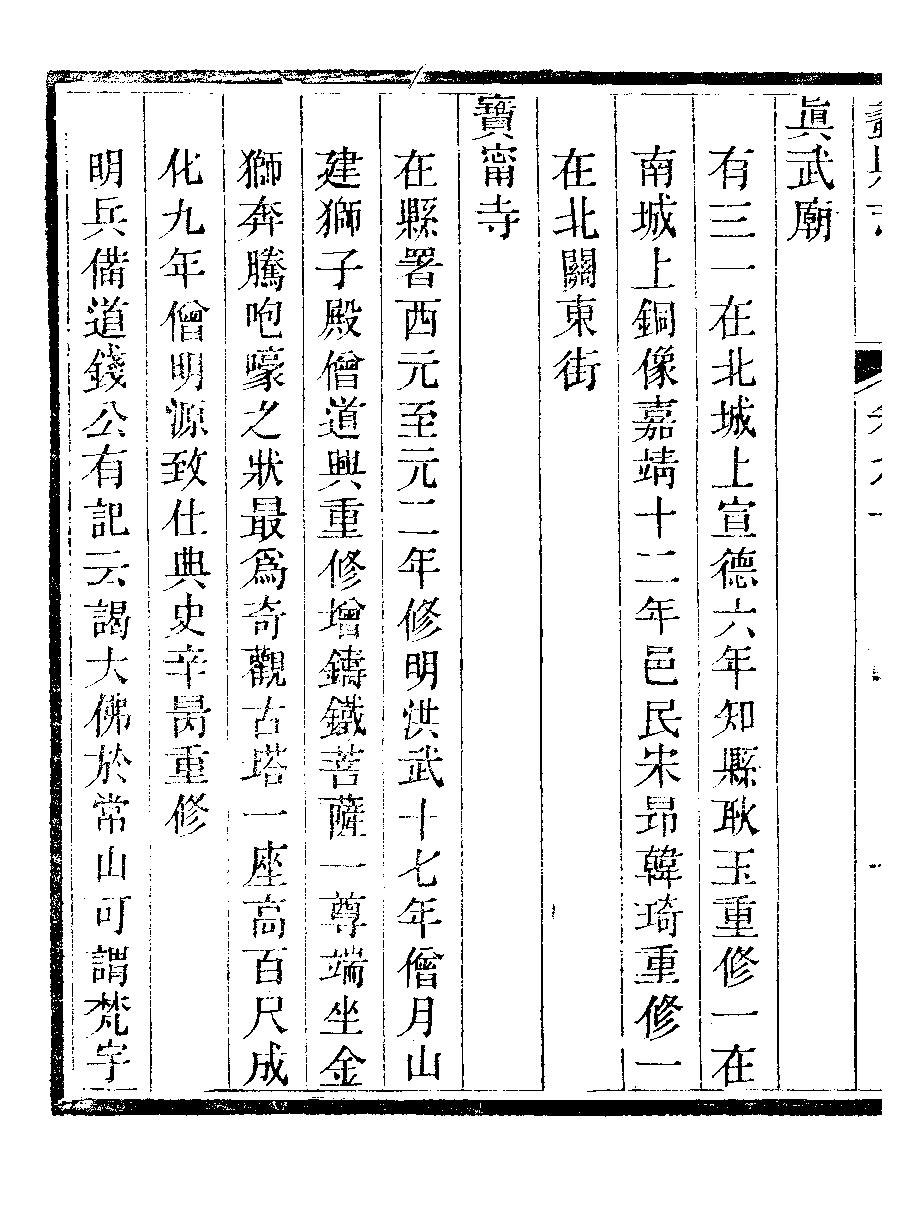 眞武廟
有三一在北城上宣德六年知縣耿玉重修一在
南城上銅像嘉靖十二年邑民宋昻韓琦重修一
在北關東街
寶甯寺
在縣署西元至元二年修明洪武十七年僧月山
建獅子殿僧道興重修增鑄鐵菩薩一尊端坐金
獅奔騰咆嚎之狀最爲奇觀古塔一座高百尺成
化九年僧明源致仕典史辛昺重修
明兵備道錢公有記云謁大佛於常山可謂梵宇